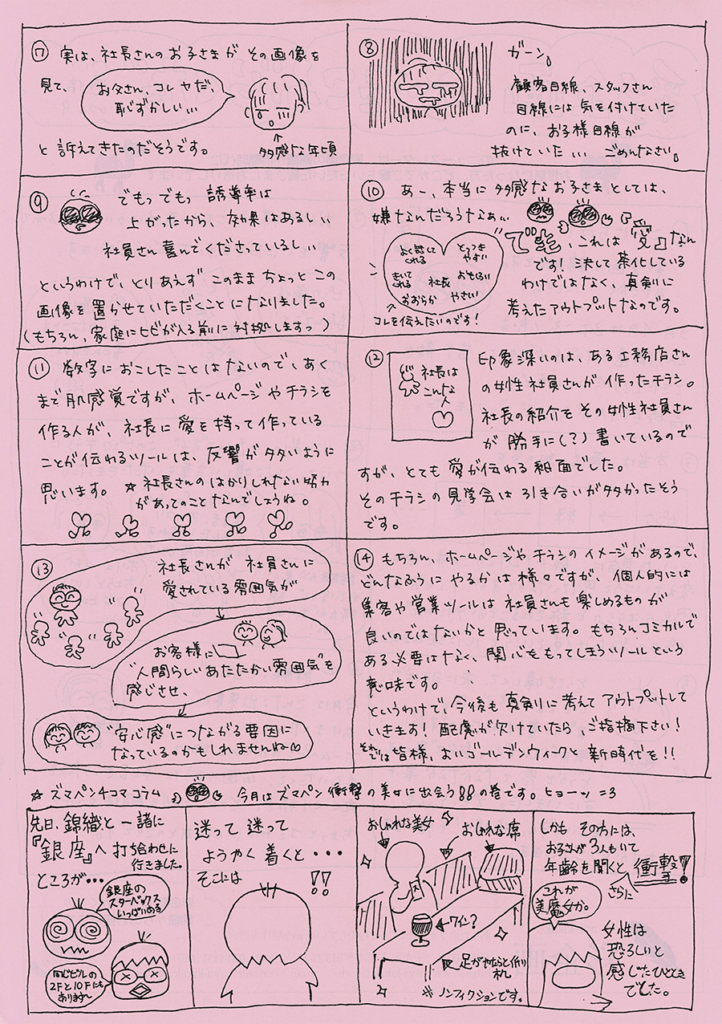 ⑦ 実は、社長さんのお子さまが その画像を
見て、
お父さん、コレ ヤだ、
恥ずかしい...
↑
多感な年頃
と 訴えてきたのだそうです。
⑧
ガーン。
顧客目線、スタッフさん
目線には 気を付けていた
のに、お子様目線が
抜けていた ... ごめんなさい。
⑨ でもっでもっ 誘導率は
上がったから、効果はあるしぃ
社員さん喜んでくださっているしぃ
というわけで、とりあえず このまま ちょっと この
画像を 置かせていただくことに なりました。
(もちろん、家庭にヒビが入る前に対処しますっ)
⑩ あー、本当に 多感な お子さまとしては、
嫌なんだろうなぁぃ
とっつき
やすい
きいて
くれる
社長
おもしろい
おおらか
やさしい
コレを伝えたいのです!
でも、これは『愛』なん
です! 決して 茶化している
わけではなく、真剣に
考えたアウトプットなのです。
⑪ 数字に おこしたことは ないので、あく
まで 肌感覚ですが、ホームページ や チラシを
作る人が、社長に 愛を 持って 作っている
ことが 伝わるツールは、反響が 多いように
思います。 ☆ 社長さんの はかりしれない 努力
があってのこと なんでしょうね。
⑫
社長は
こんな
人
印象深いのは、ある 工務店さん
の女性社員さんが 作ったチラシ。
社長の紹介を その女性社員さん
が 勝手に(?)書いているので
すが、とても 愛が 伝わる 紙面でした。
そのチラシの 見学会は 引き合いが多かったそう
です。
⑬
社長さんが 社員さんに
愛されている 雰囲気が
お客様に
“人間らしい あたたかい 雰囲気”を
感じさせ、
“安心感”につながる 要因に
なっているのかもしれませんね
⑭ もちろん、ホームページや チラシの イメージがあるので、
どんなふうに やるか は 様々ですが、個人的には
集客や営業ツールは 社員さんも 楽しめるものが
良いのではないかと 思っています。もちろんコミカルで
ある必要はなく、関心をもってしまうツールという
意味です。
というわけで、今後も 真剣に 考えて アウトプットして
いきます! 配慮が 欠けていたら、ご指摘下さい!
それでは皆様、よいゴールデンウィークと 新時代を!!
☆ ズマペン4コマコラム 今月は ズマペン 衝撃の美女に出会う の巻です。ヒョーーッ =3
先日、錦織と一緒に
『銀座』へ 打ち合わせに
行きました。
ところが...
銀座の
スターバックス
いっぱいある
同じビルの
2Fと10Fにも
あります〜
迷って 迷って
ようやく 着くと・・・
そこには !!
おしゃれな美女
おしゃれな席
←ワイン?
足がやたらと細
い
※ ノンフィクションです。
しかも その方には、
お子さんが 3人もいて
年齢を聞くと 衝撃!
さらに
これが
美魔女か。
女性は
恐ろしいと
感じたひととき
でした。